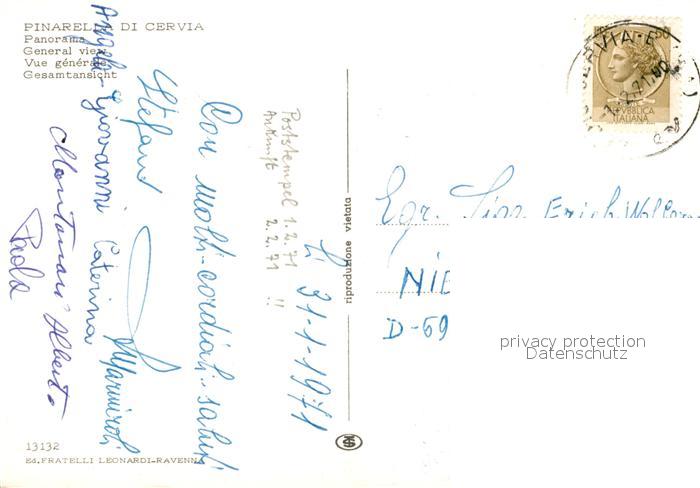 PINARELLA DI CERVIA
Panorama
General view
Vue générale
Gesamtansicht
Li 31-1-1971
Poststempel 1.2.71
Ankunft 2.2.71 !!
Con molti cordiali saluti
Stefano
Marmiroli
Angela Giovanni Caterina
Montanari Alberto
Paola
13132
Ed. FRATELLI LEONARDI-RAVENNA
riproduzione vietata
50
REPVBBLICA
ITALIANA
CERVIA
Egr. Sign. Erich
NIE
D-59
privacy protection
Datenschutz